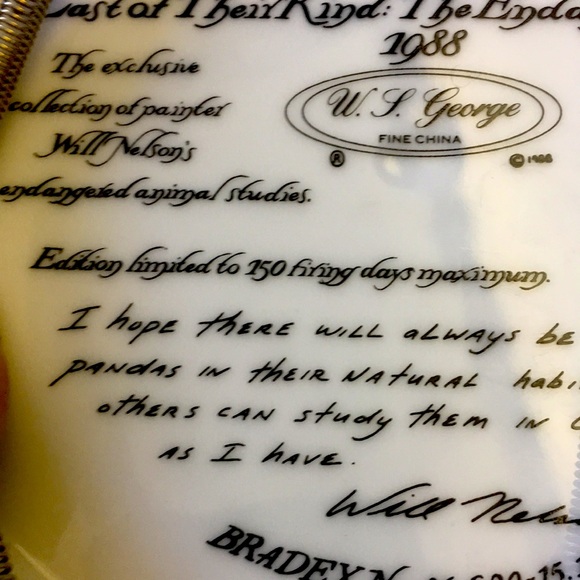 Last of Their Kind: The Enda
1988
The exclusive
collection of painter
Will Nelson's
endangered animal studies.
W. S. George
FINE CHINA
® © 1988
Edition limited to 150 firing days maximum.
I hope there will always be
pandas in their natural habi
others can study them in C
as I have.
Will Nels
BRADEX